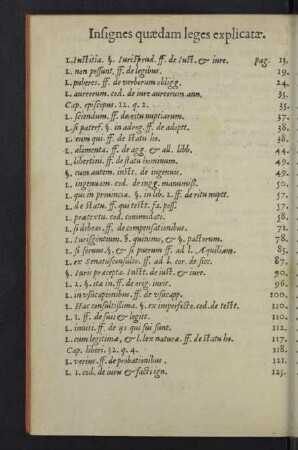 Insignes quædam leges explicatæ.
L. Iustitia. §. Iurisprud. ff. de Iust. & iure. pag. 13.
L. non possunt. ff. de legibus. 19.
L. puberes. ff. de verborum obligg. 24.
L. aureorum. cod. de iure aureorum ann. 35.
Cap. episcopus. 12. q. 2. 35.
L. sciendum. ff. de ritu nuptiarum. 37.
L. si paterf. §. in adrog. ff. de adopt. 38.
L. eum qui. ff. de statu ho. 38.
L. alimenta. ff. de agg. & all. libb. 44.
L. libertini. ff. de statu hominum. 49.
§. cum autem. inst. de ingenuis. 49.
L. ingenuam. cod. de ing. manumiss. 50.
L. qui in provincia. §. in lib. 2. ff. de ritu nuptt. 57.
L. de statu. ff. qui test. fa. poss. 57.
L. prætextu. cod. commodati. 58.
L. si debeas. ff. de compensationibus. 71.
L. Iurisgentium. §. quinimo, & §. pactorum. 78.
L. si servus. §. & si puerum ff. ad l. Aquiliam. 85.
L. ex Senatusconsulto. ff. ad l. cor. de sicc. 87.
§. Iuris præcepta. Instt. de iust. & iure. 90.
L. 2. §. ita in. ff. de orig. iuris. 96.
L. in vsucapionibus. ff. de vsucapp. 100.
L. Hac consultissima. § ex imperfecto. cod. de test. 110.
L. 1. ff. de suis & legit. 110.
L. inviti. ff. de ijs qui sui sunt. 112.
L. cum legitimæ, & l. lex naturæ. ff. de statu ho. 117.
Cap. liberi. 32. q. 4. 118.
L. verius. ff. de probationibus. 121.
L. 1. cod. de iuris & facti ign. 125.